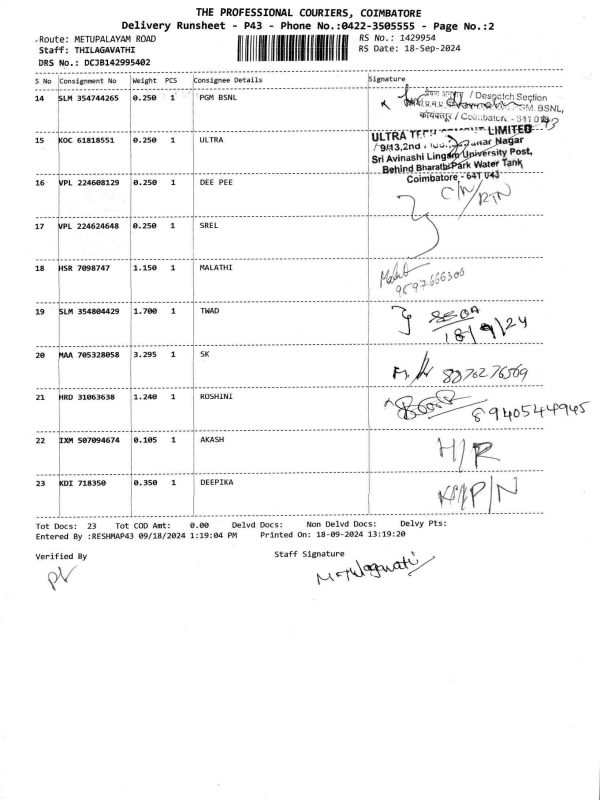 THE PROFESSIONAL COURIERS, COIMBATORE
Delivery Runsheet - P43 - Phone No.:0422-3505555 - Page No.:2
Route: METUPALAYAM ROAD RS No.: 1429954
Staff: THILAGAVATHI RS Date: 18-Sep-2024
DRS No.: DCJB142995402
S No Consignment No Weight PCS Consignee Details Signature
14 SLM 354744265 0.250 1 PGM BSNL
/ Despatch Section
BSNL,
कोयंबत्तूर / Coimbatore - 641 043
15 KOC 61818551 0.250 1 ULTRA
ULTRA TECH CEMENT LIMITED
Nagar
Sri Avinashi Lingam University Post,
Behind Bharathi Park Water Tank
Coimbatore - 641 043
16 VPL 224608129 0.250 1 DEE PEE
C/N/RTN
17 VPL 224624648 0.250 1 SREL
18 HSR 7098747 1.150 1 MALATHI
Malathi
9597666306
19 SLM 354804429 1.700 1 TWAD
18/9/24
20 MAA 705328058 3.295 1 SK
8870276569
21 HRD 31063638 1.240 1 ROSHINI
8940544945
22 IXM 507094674 0.105 1 AKASH
H/R
23 KDI 718350 0.350 1 DEEPIKA
P/N
Tot Docs: 23 Tot COD Amt: 0.00 Delvd Docs: Non Delvd Docs: Delvy Pts:
Entered By :RESHMAP43 09/18/2024 1:19:04 PM Printed On: 18-09-2024 13:19:20
Verified By Staff Signature
M. Thilagavati